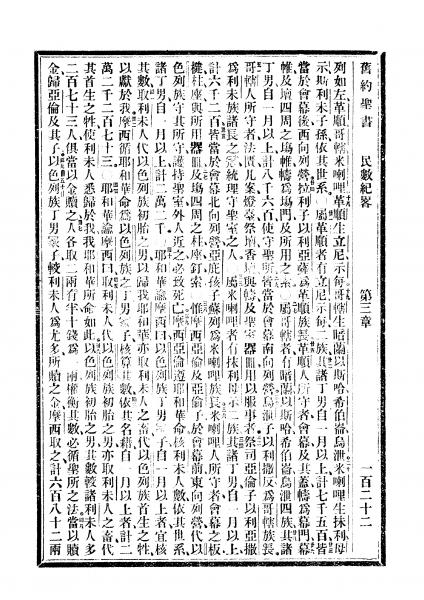 舊約聖書 民數紀畧 第三章 一百二十二
列如左革順哥轄米喇哩革順生立尼示每哥轄生暗蘭以斯哈希伯崙烏泄米喇哩生抹利母
示斯利未子孫依其世系○屬革順者有立尼示每二族其諸丁男自一月以上計七千五百皆
當於會幕後西向列營拉利子以利亞薩為革順族長革順人所守者會幕及其蓋幬為幕門
帷及壇四周之場帷幬為場門及所用之索○屬哥轄者有暗蘭以斯哈希伯崙烏泄四族其諸
丁男自一月以上計八千六百使守聖所皆當於會幕南向列營烏泄子以利撒反為哥轄族長
哥轄人所守者法匱几案燈臺祭壇香壇與幬及聖室器皿用以服事者祭司亞倫子以利亞撒
為利未族諸長之冠統理守聖室之人○屬米喇哩者有抹利母示二族其諸丁男自一月以上
計六千二百皆當於會幕北向列營亞庇孩子蘇列為米喇哩族長米喇哩人所守者會幕之板
楗柱座與所用器皿及場四周之柱座釘索○惟摩西亞倫及亞倫子於會幕前東向列營代以
色列族守其所守護持聖室外人近之必致死亡摩西亞倫遵耶和華命核利未人數依其世系
諸丁男自一月以上計二萬二千○耶和華諭摩西曰以色列族丁男冢子自一月以上者宜核
其數取利未人代以色列族初胎之男以歸我耶和華亦取利未人之畜代以色列族首生之牲
以獻於我摩西循耶和華命為以色列族之丁男冢子核算其數依其名籍自一月以上者計二
萬二千二百七十三○耶和華諭摩西曰取利未人代以色列族初胎之男亦取利未人之畜代
其首生之牲使利未人悉歸於我我耶和華所命如此以色列族初胎之男其數較諸利未人多
二百七十三人俱當以金贖之人各取二兩有半十錢為 兩權衡其數必循聖所之法當以贖
金歸亞倫及其子以色列族丁男冢子較利未人為尤多所贖之金摩西取之計六百八十二兩